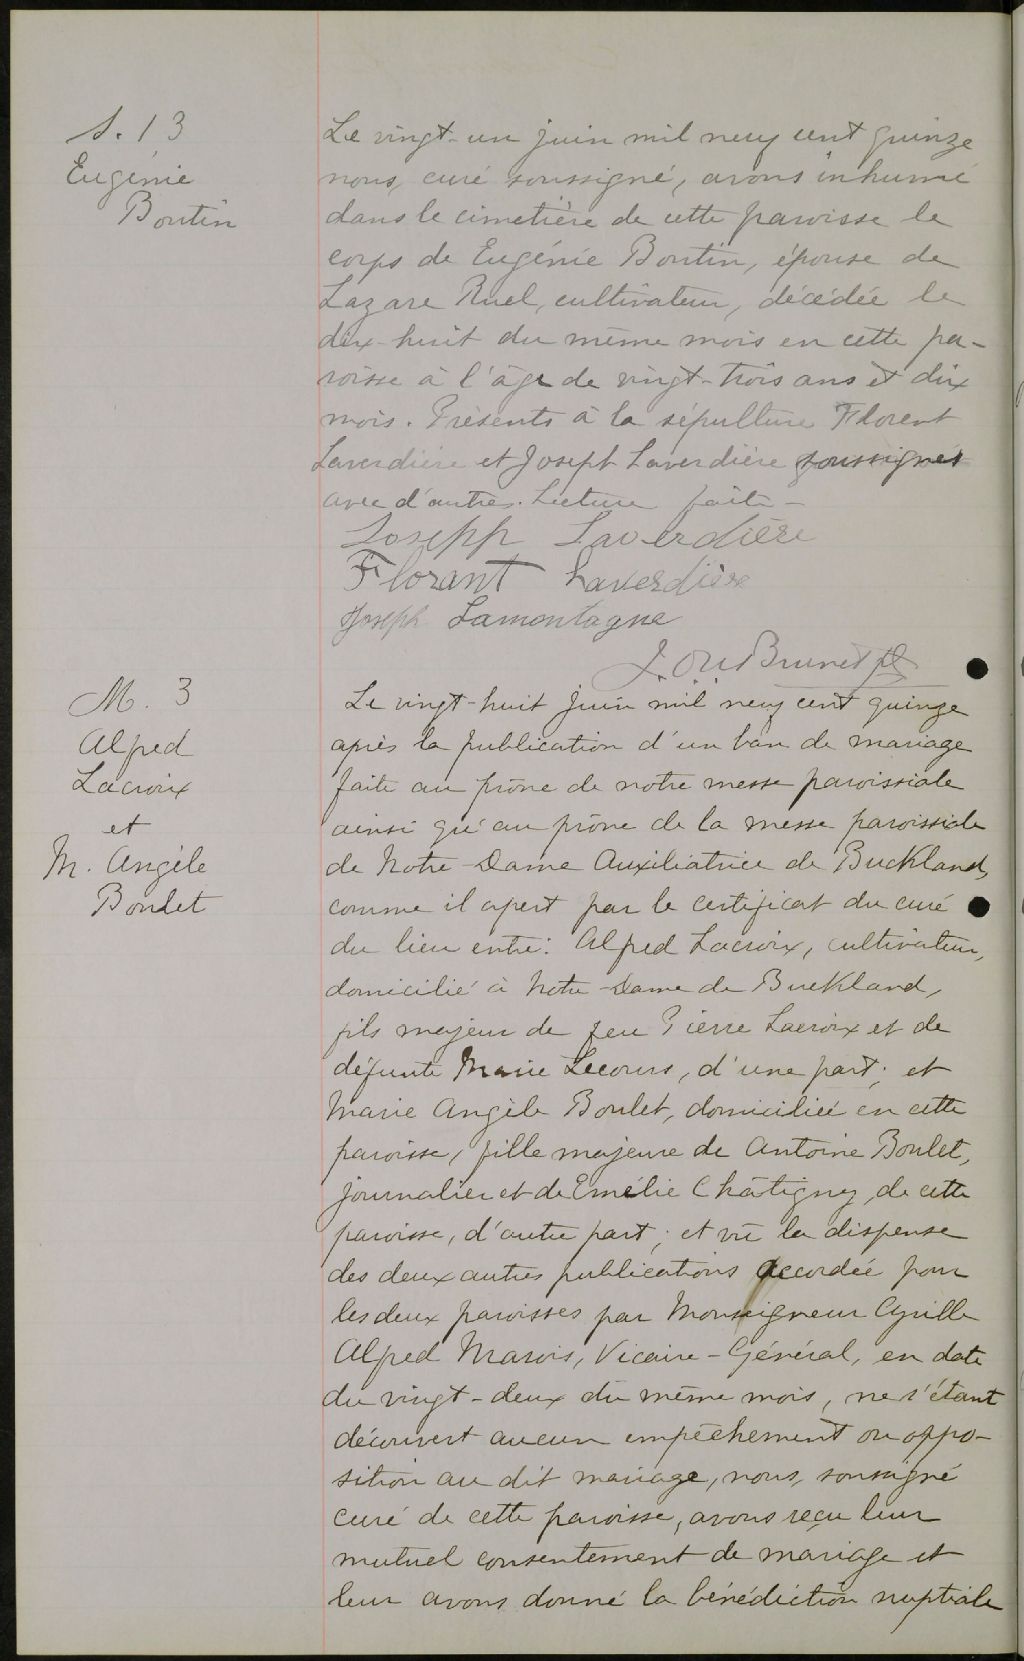 S. 13
Eugénie
Boutin
Le vingt-un juin mil neuf cent quinze
nous, curé soussigné, avons inhumé
dans le cimetière de cette paroisse le
corps de Eugénie Boutin, épouse de
Lazare Ruel, cultivateur, décédée le
dix-huit du même mois en cette pa-
roisse à l'âge de vingt-trois ans et dix
mois. Présents à la sépulture Florent
Laverdière et Joseph Laverdière soussignés
avec d'autres. Lecture faite -
Joseph Laverdière
Florant Laverdière
Joseph Lamontagne
Brunet ptr
M. 3
Alfred
Lacroix
et
M. Angèle
Boulet
Le vingt-huit juin mil neuf cent quinze
après la publication d'un ban de mariage
faite au prône de notre messe paroissiale
ainsi qu'au prône de la messe paroissiale
de Notre-Dame Auxiliatrice de Buckland,
comme il apert par le certificat du curé
du lieu entre: Alfred Lacroix, cultivateur,
domicilié à Notre-Dame de Buckland,
fils majeur de feu Pierre Lacroix et de
défunte Marie Lecours, d'une part; et
Marie Angèle Boulet, domiciliée en cette
paroisse, fille majeure de Antoine Boulet,
journalier et de Emélie Châtigny, de cette
paroisse, d'autre part; et vu la dispense
des deux autres publications accordée pour
les deux paroisses par Monseigneur Cyrille
Alfred Marois, Vicaire-Général, en date
du vingt-deux du même mois, ne s'étant
découvert aucun empêchement ou oppo-
sition au dit mariage, nous, soussigné
curé de cette paroisse, avons reçu leur
mutuel consentement de mariage et
leur avons donné la bénédiction nuptiale